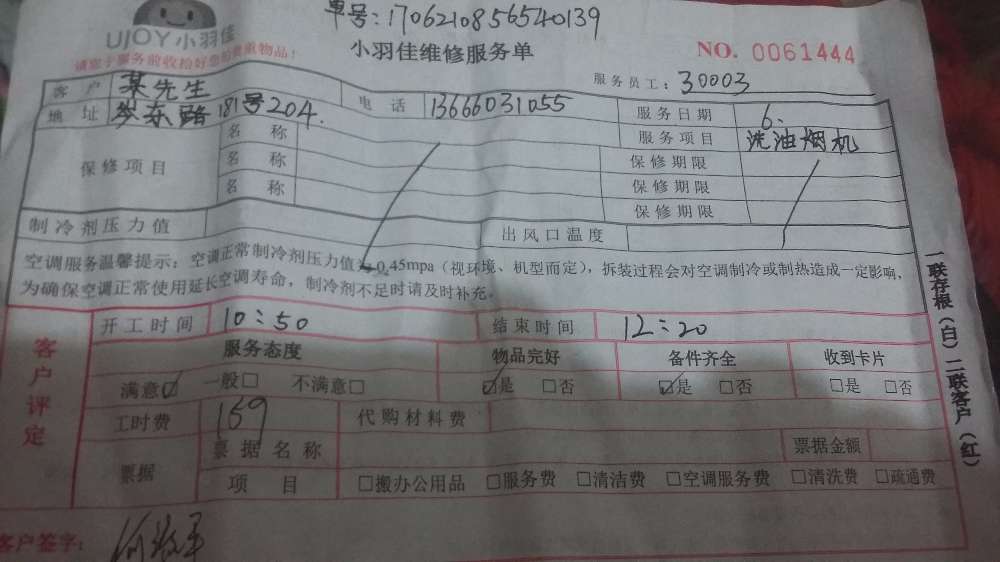 单号:1706210856540139
UJOY小羽佳
小羽佳维修服务单
NO. 0061444
请您于服务前收拾好您的贵重物品!
服务员工: 30003
客户 某先生 电话 13666031055 服务日期 6.
地址 岑东路181号204. 服务项目 洗油烟机
保修项目
名称 保修期限
名称 保修期限
名称 保修期限
制冷剂压力值 出风口温度
空调服务温馨提示:空调正常制冷剂压力值为0.45mpa(视环境、机型而定),拆装过程会对空调制冷或制热造成一定影响,
为确保空调正常使用延长空调寿命,制冷剂不足时请及时补充。
开工时间 10:50 结束时间 12:20
客户评定
服务态度 物品完好 备件齐全 收到卡片
满意☑ 一般□ 不满意□ ☑是 □否 ☑是 □否 □是 □否
工时费 159 代购材料费
票据 票据名称 票据金额
项目 □搬办公用品 □服务费 □清洁费 □空调服务费 □清洗费 □疏通费
客户签字:
一联存根(白)二联客户(红)